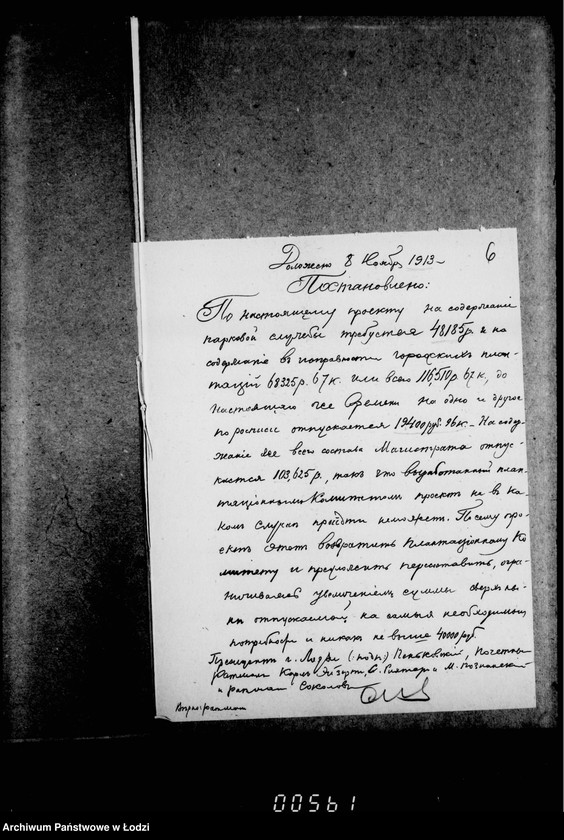 Доложено 8 Ноября 1913 г.
6
Постановлено:
По настоящему проекту на содержаніе
парковой службы требуется 48185 р. и на
содержаніе въ исправности городскихъ план-
тацій 68325 р. 67 к. или всего 116,510 р. 67 к., до
настоящаго же времени на одно и другое
по росписи отпускается 19400 руб. 96 к. – На содер-
жаніе же всего состава Магистрата отпус-
кается 103,625 р., такъ что выработанный план-
таціоннымъ Комитетомъ проектъ ни въ ка-
комъ случаѣ пройти не можетъ. Посему про-
ектъ этотъ возвратить Плантаціонному Ко-
митету и предложить пересоставить, огра-
ничиваясь увеличеніемъ суммы сверхъ ны-
нѣ отпускаемой на самыя необходимыя
потребности и никакъ не выше 40000 руб.
Президентъ г. Лодзи (:подп:) Пеньковскій, Почетные
Ратманы Карлъ Эйзертъ, Э. Рихтеръ и М. Познанскій
и ратманъ Соколовъ
Вѣрно: ратманъ
00561
Archiwum Państwowe w Łodzi